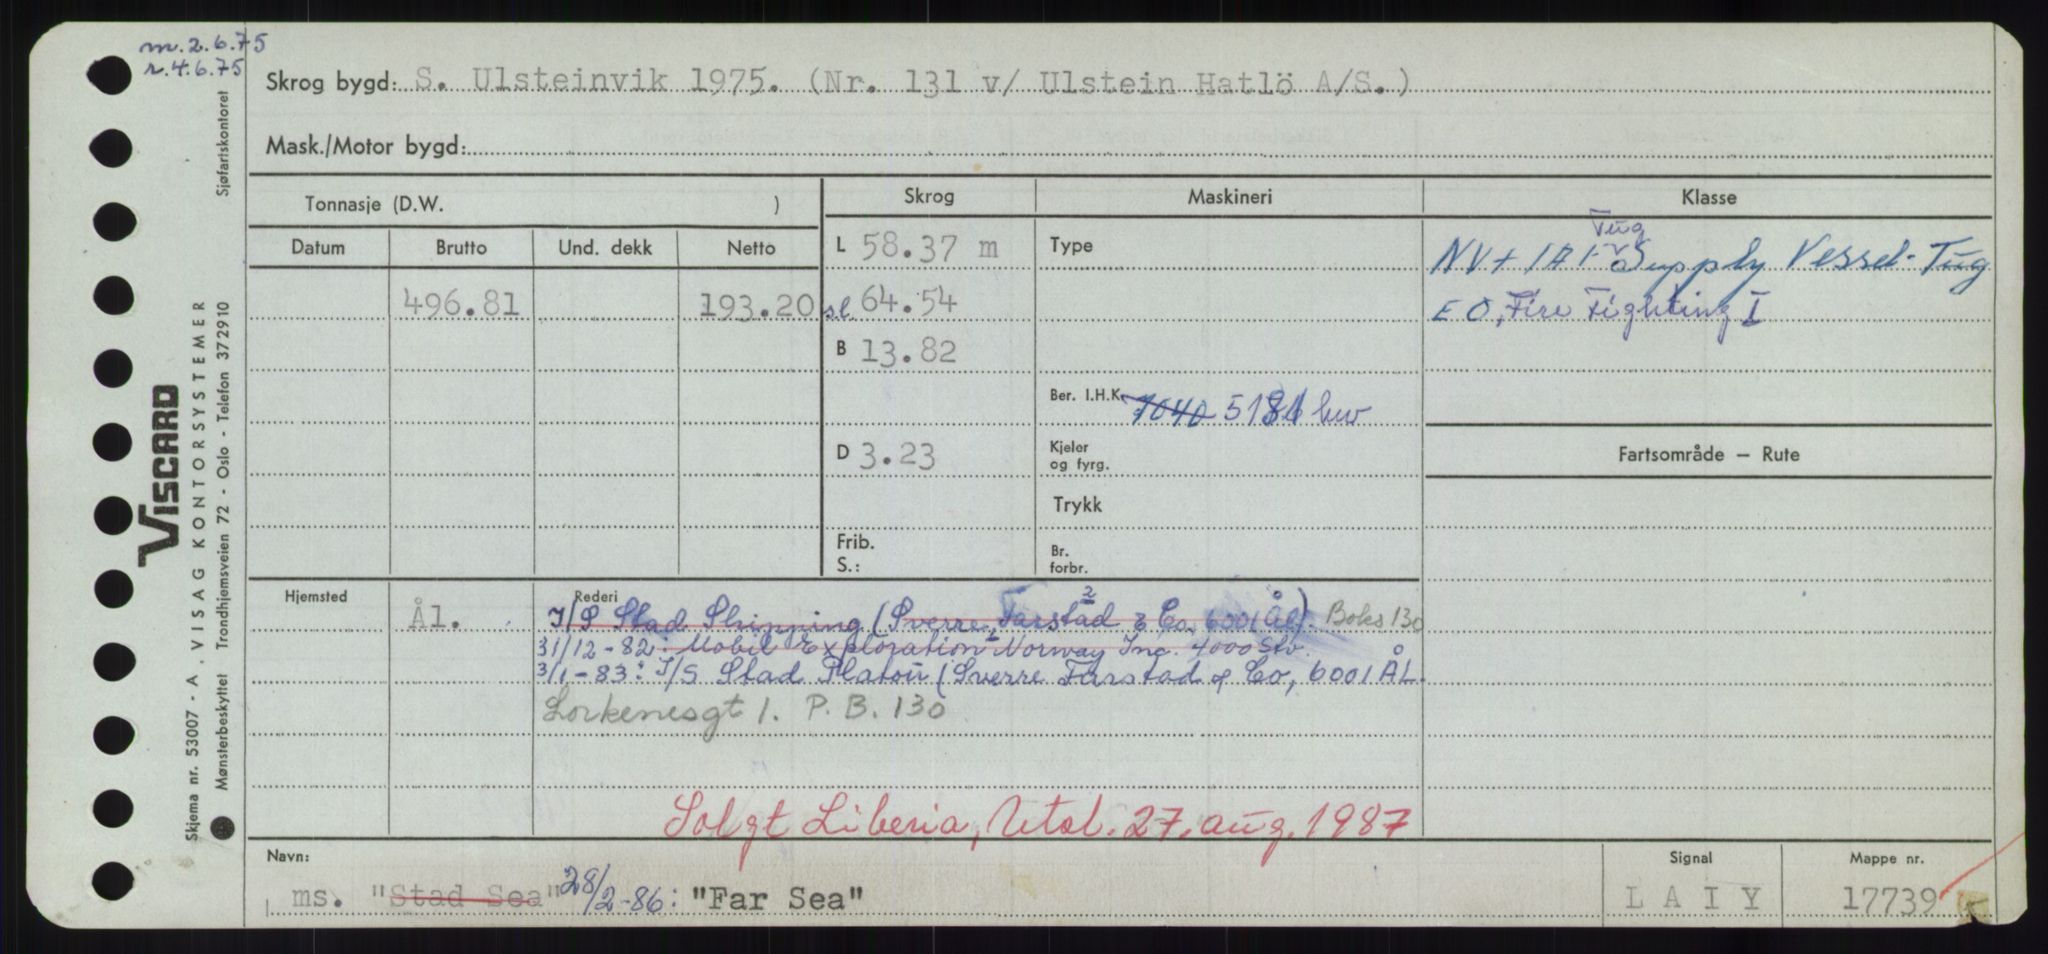 m. 2.6.75
r. 4.6.75
Skrog bygd: S. Ulsteinvik 1975. (Nr. 131 v/ Ulstein Hatlö A/S.)
Mask./Motor bygd:
Tonnasje (D.W. )
Datum Brutto Und. dekk Netto
496.81 193.20
Skrog
L 58.37 m
sl. 64.54
B 13.82
D 3.23
Frib.
S.:
Maskineri
Type
Ber. I.H.K. 7040 5181 hw
Kjeler
og fyrg.
Trykk
Br.
forbr.
Klasse
Tug
NV + 1A1 - Supply Vessel - Tug
EO, Fire Fighting I
Fartsområde — Rute
Hjemsted
Ål.
Rederi
I/S Stad Shipping (Sverre Farstad & Co, 6001 Ål). Boks 130
31/12-82: Mobil Exploration Norway Inc. 4000 Stv.
3/1-83: I/S Stad Platou (Sverre Farstad & Co, 6001 ÅL
Lorkenesgt 1. P.B. 130
Solgt Liberia, 27. aug. 1987
Navn:
ms. "Stad Sea" 28/2-86: "Far Sea"
Signal
L A I Y
Mappe nr.
17739
VISCARD
Skjema nr. 53007 - A. VISAG KONTORSYSTEMER
Mønsterbeskyttet Trondhjemsveien 72 - Oslo - Telefon 372910 Sjøfartskontoret